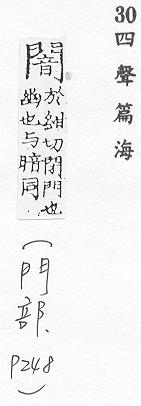 30四聲篇海
闇
於紺切閉門也
幽也与暗同
（門部.
P248）